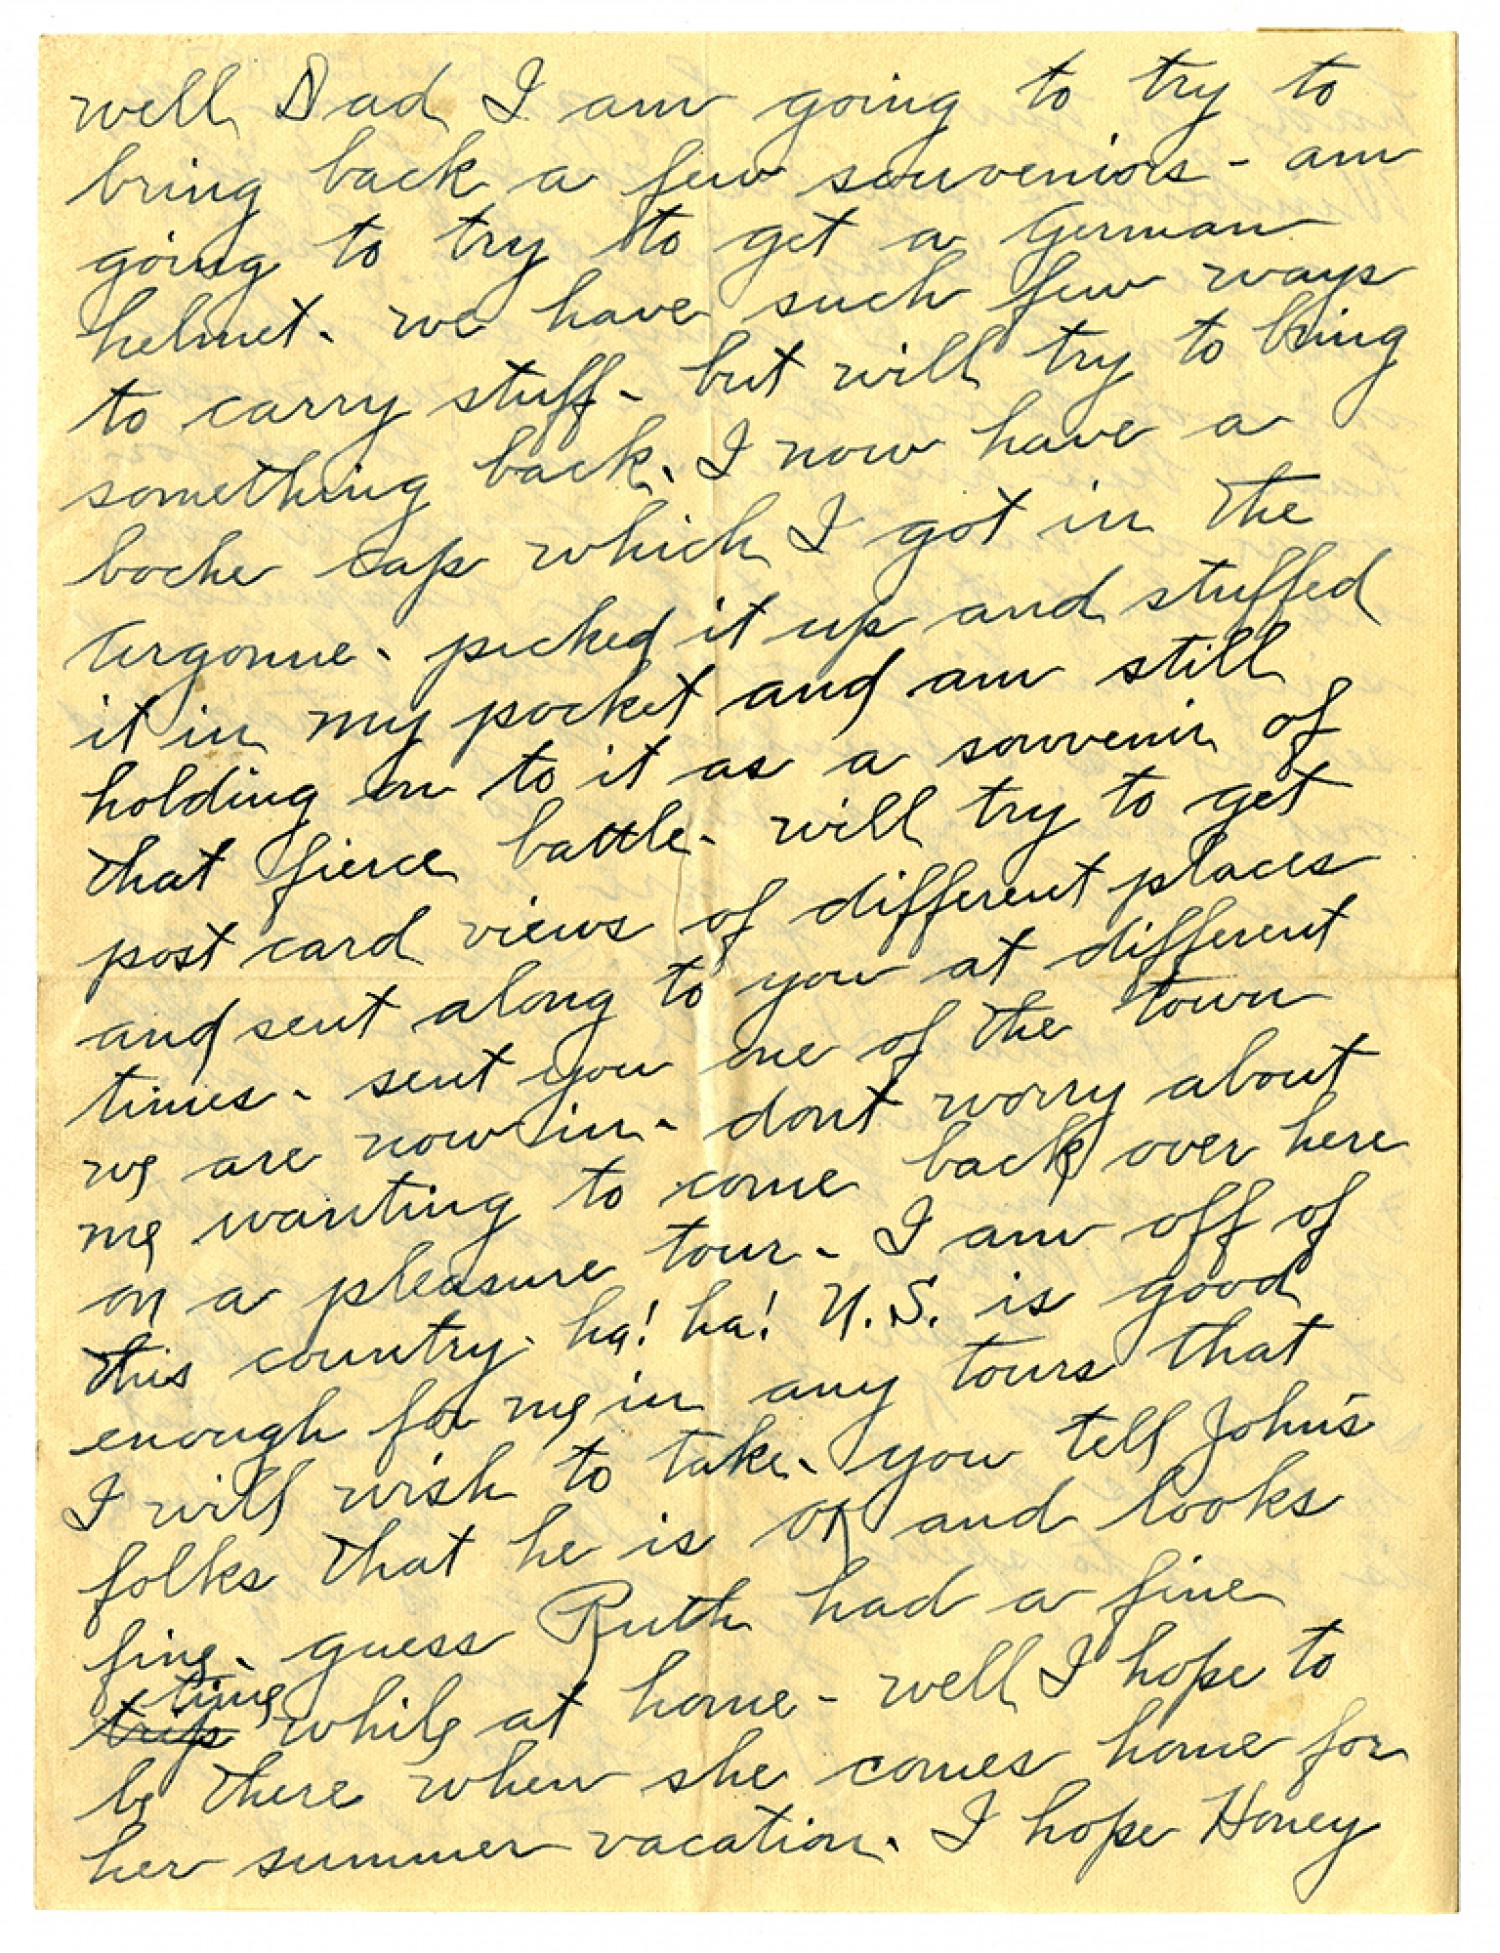 well Dad I am going to try to
bring back a few souveniors - am
going to try to get a German
helmet. we have such few ways
to carry stuff - but will try to bring
something back. I now have a
boche cap which I got in the
Argonne - picked it up and stuffed
it in my pocket and am still
holding on to it as a souvenir of
that fierce battle - will try to get
post card views of different places
and sent along to you at different
times - sent you one of the town
we are now in - dont worry about
me wanting to come back over here
on a pleasure tour - I am off of
this country. ha! ha! U.S. is good
enough for me in any tours that
I will wish to take - you tell John's
folks that he is OK and looks
fine - guess Ruth had a fine
time
trip while at home - well I hope to
be there when she comes home for
her summer vacation. I hope Honey